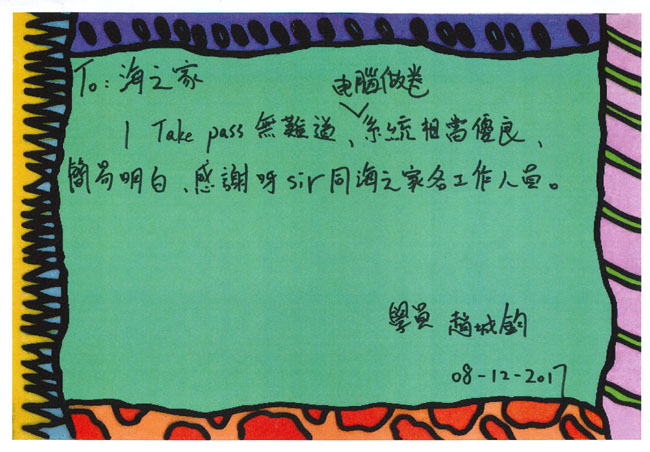 To: 海之家
电腦做卷
1 Take pass 無難道、系統相當優良、
簡易明白、感謝呀sir同海之家各工作人員。
學員 趙城鈞
08-12-2017